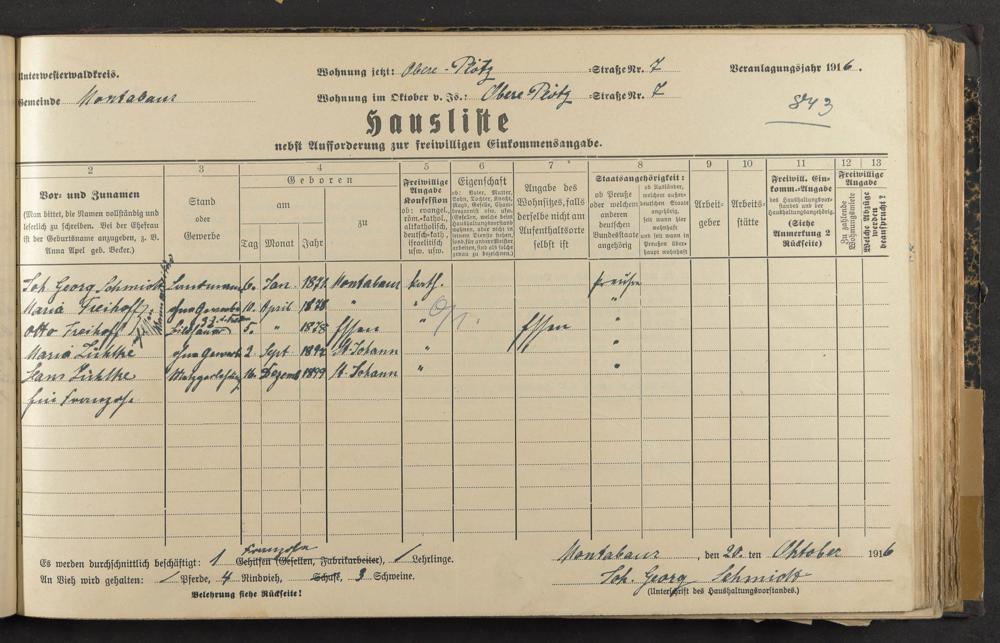 Unterwesterwaldkreis.
Wohnung jetzt: Obere-Plötz =Straße Nr. 7
Veranlagungsjahr 1916.
Gemeinde Montabaur
Wohnung im Oktober v. Js.: Obere Plötz =Straße Nr. 7
843
Hausliste
nebst Aufforderung zur freiwilligen Einkommensangabe.
2 3 4 5 6 7 8 9 10 11 12 13
Vor- und Zunamen
(Man bittet, die Namen vollständig und leserlich zu schreiben. Bei der Ehefrau ist der Geburtsname anzugeben, z. B. Anna Apel geb. Becker.)
Stand oder Gewerbe
Geboren
am
zu
Tag Monat Jahr
Freiwillige Angabe
Konfession
ob: evangel., röm.-kathol., altkatholisch, deutsch-kath., israelitisch usw. usw.
Eigenschaft
Angabe des Wohnsitzes, falls derselbe nicht am Aufenthaltsorte selbst ist
Staatsangehörigkeit:
ob Preuße oder welchem anderen deutschen Bundesstaate angehörig
ob Ausländer, welchem außerdeutschen Staate angehörig, seit wann hier wohnhaft und seit wann in Preußen überhaupt wohnhaft
Arbeitgeber
Arbeitsstätte
Freiwill. Einkomm.-Angabe
des Haushaltungsvorstandes und der Haushaltungsangehörig.
(Siehe Anmerkung 2 Rückseite)
Freiwillige Angabe
Zu zahlende Wohnungsmiete
Welche Abzüge werden beansprucht?
Joh. Georg Schmidt Landmann 6. Jan. 1871 Montabaur kath. Preuße
Maria Freihoff ohne Gewerbe 10. April 1878 " " "
Otto Freihoff 5. " 1878 Essen " Essen "
Maria Lühtke ohne Gewerbe 2. Sept 1897 St Johann " "
Hans Lühtke Metzgerlehrling 16. Dezemb 1899 St. Johann " "
Ein Franzose
Es werden durchschnittlich beschäftigt: 1 Franzosen Gehilfen (Gesellen, Fabrikarbeiter), / Lehrlinge.
Montabaur, den 20. ten Oktober 1916
An Vieh wird gehalten: / Pferde, 4 Rindvieh, Schafe, 3 Schweine.
Joh. Georg Schmidt
Belehrung siehe Rückseite!
(Unterschrift des Haushaltungsvorstandes.)